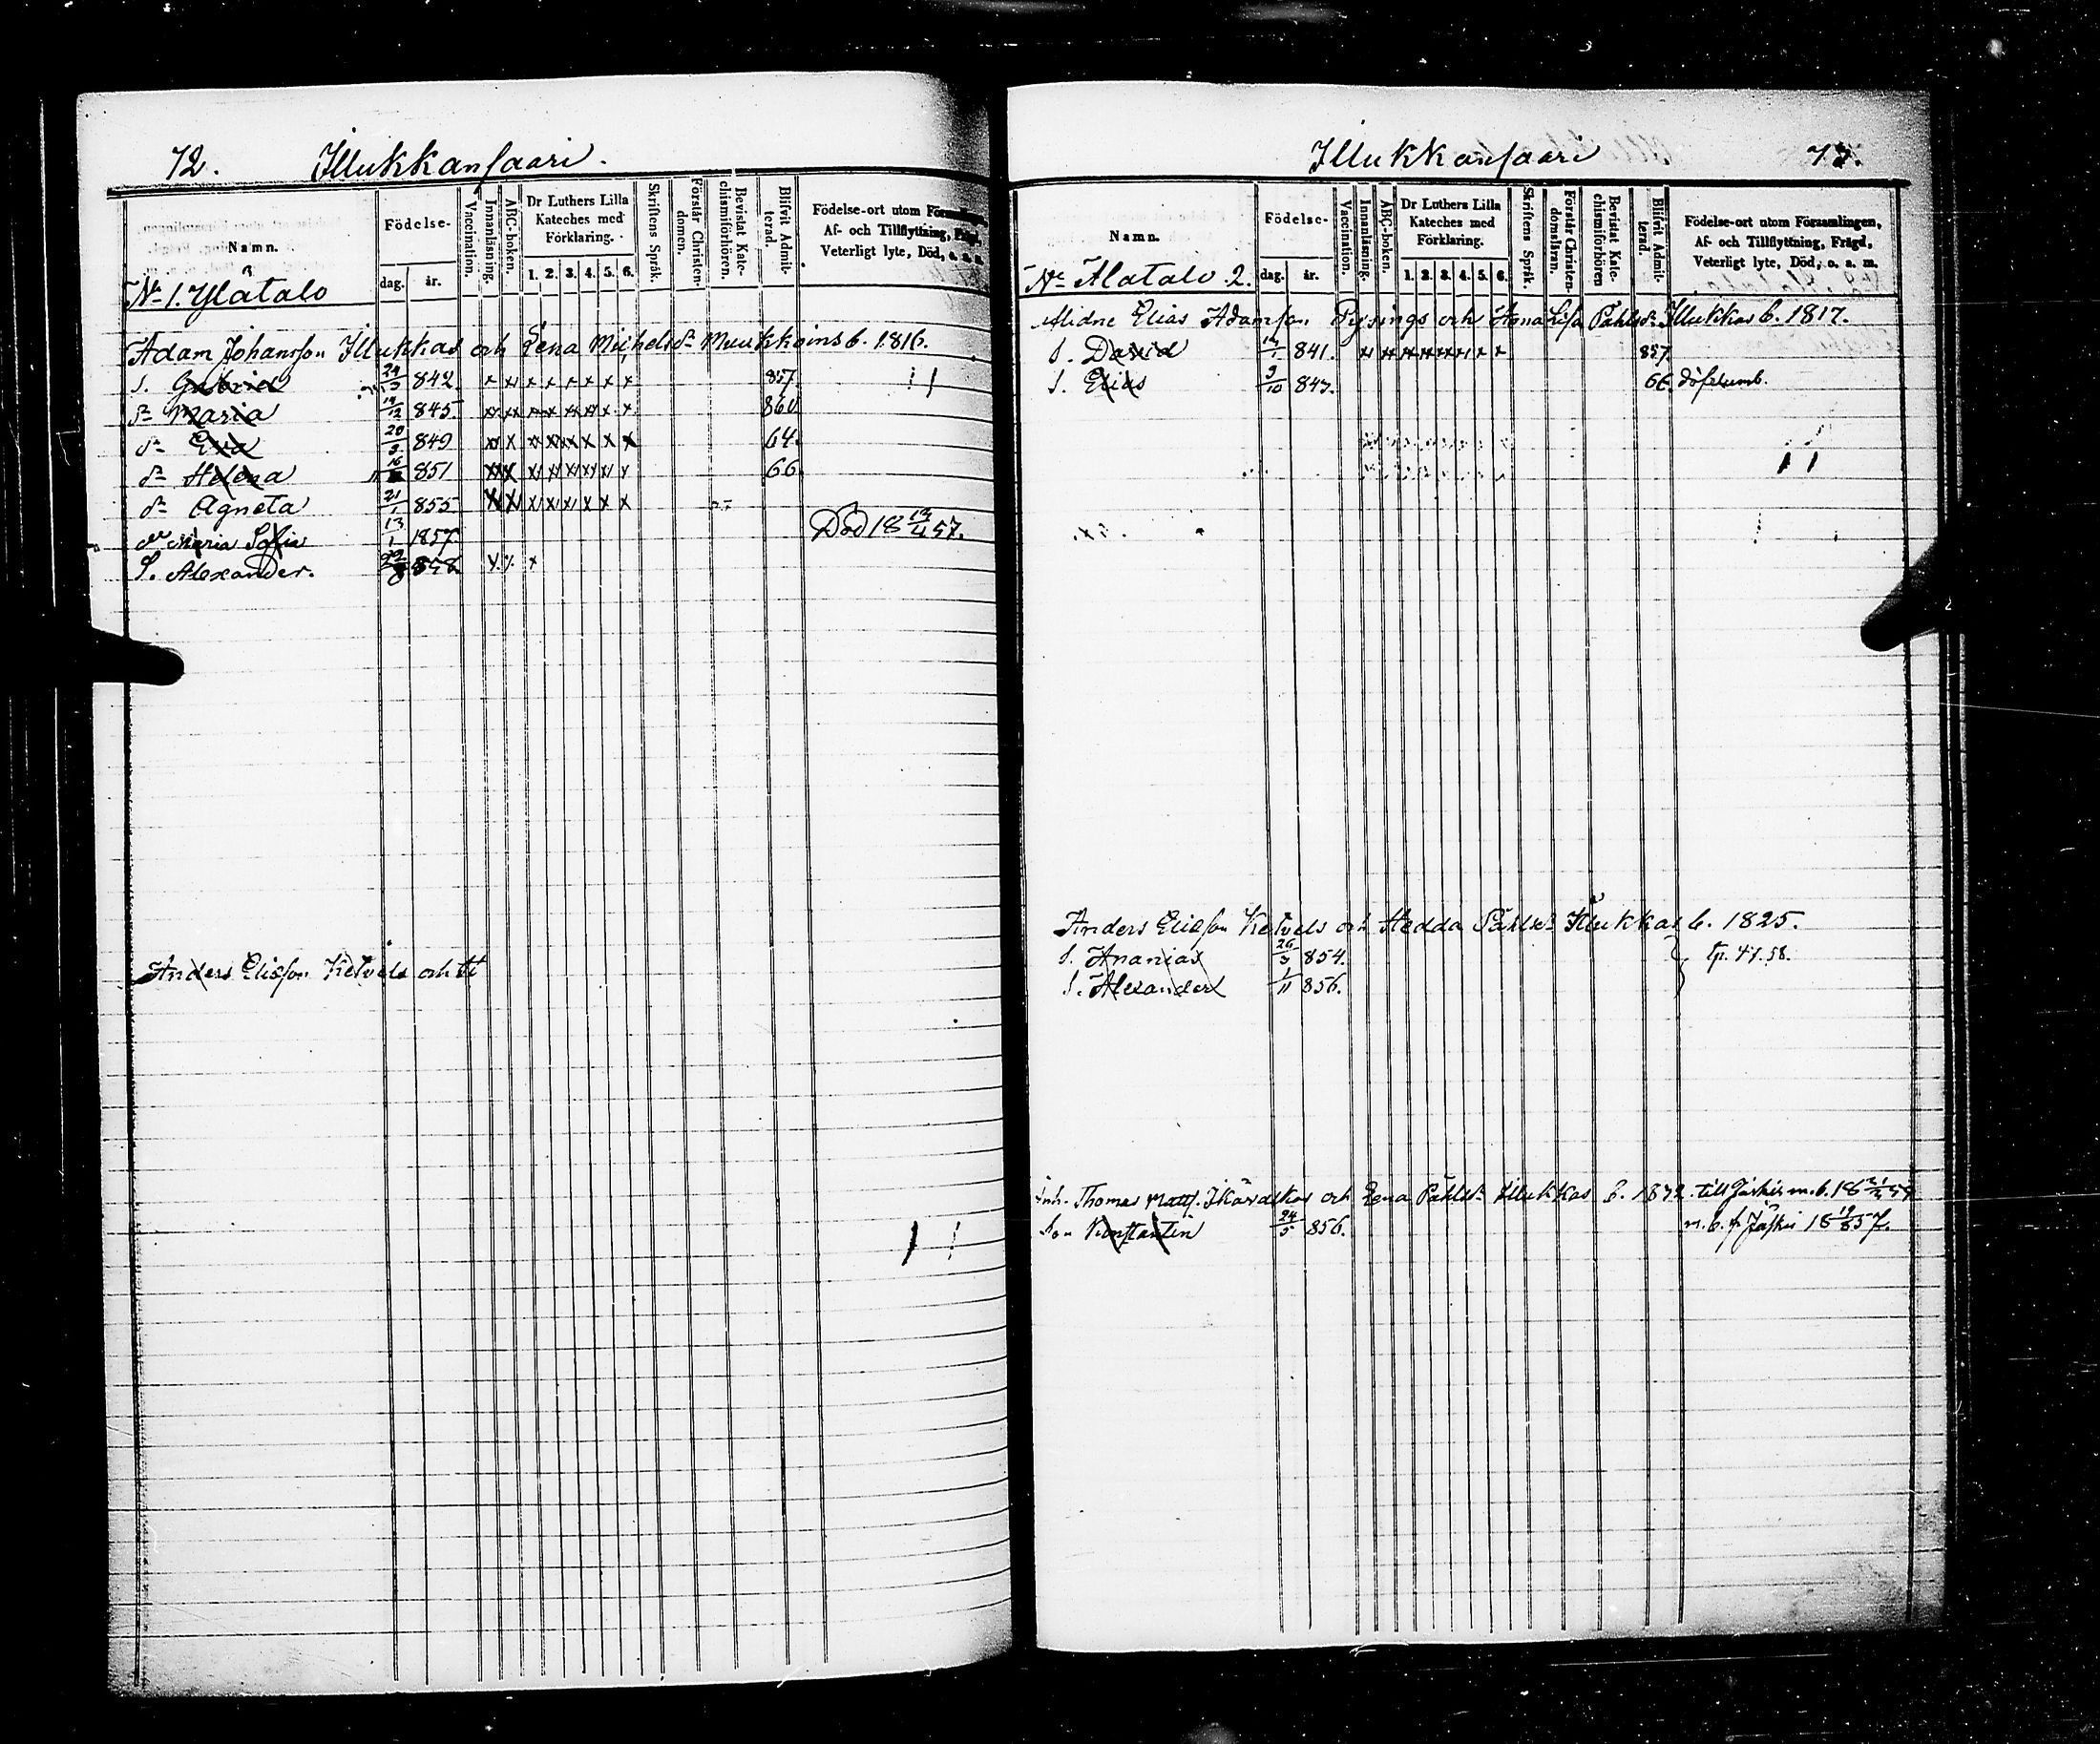 72. Illukkansaari.
Namn.
Födelse-
dag. år.
Vaccination.
Innanläsning.
ABC-boken.
Dr Luthers Lilla Kateches med Förklaring.
1. 2. 3. 4. 5. 6.
Skriftens Språk.
Förstår Christendomen.
Bevistat Katechismiförhören.
Blifvit Admitterad.
Födelse-ort utom
Af- och Tillflyttning,
Veterligt lyte, Död, o. a. m.
No 1. Ylatalo
Adam Johansson Illukkas och Lena Michelsdr Muukkoins b. 1816.
S. Gabriel 842 x x x x x x x x 857
dr Maria 19/12 845 860
dr Eva 20/3 849 64.
dr Helena 851 66
dr Agneta 21/1 855
dr Maria Sofia 13/1 1857 Död 18 13/4 57.
S. Alexander. 858
Anders Eliasson Ketvels och
Illukkansaari 73.
Namn.
Födelse-
dag. år.
Vaccination.
Innanläsning.
ABC-boken.
Dr Luthers Lilla Kateches med Förklaring.
1. 2. 3. 4. 5. 6.
Skriftens Språk.
Förstår Christendomsläran.
Bevistat Katechismiförhören
Blifvit Admitterad.
Födelse-ort utom Församlingen,
Af- och Tillflyttning, Frägd,
Veterligt lyte, Död, o. a. m.
No Alatalo 2.
Elias Adamsson Pysings och Anna Lisa Påhlsdr Illukkas b. 1817.
S. David 841. 857.
S. Elias 9/10 843. 66. döfstumb.
Anders Eliasson Ketvels och Hedda Påhlsdr Illukkas b. 1825.
S. Ananias 26/3 854. tp. 47. 58.
S. Alexander 1/11 856.
Inh. Thomas Matts. och Lena Påhlsdr Illukkas b. 1832. till Jäskis m. b.
Son Konstantin 24/5 856. m. b. fr Jäskis 18 19/8 57.